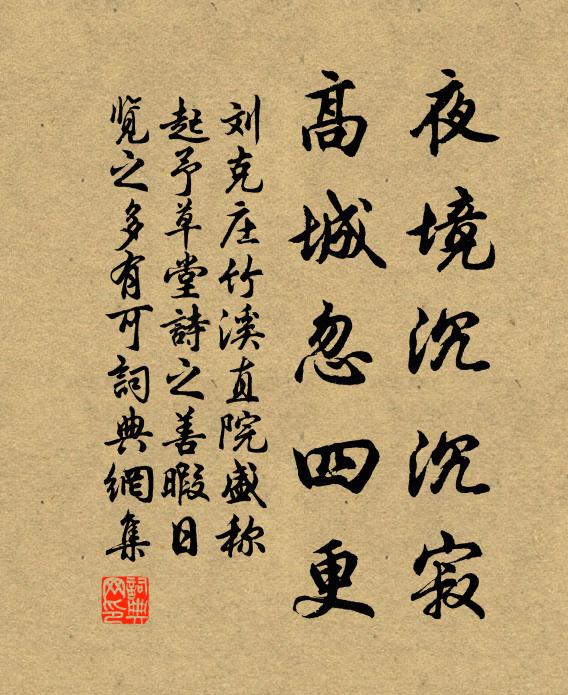 夜境沉沉寂
高城忽四更
刘克庄竹溪直院盛称
起予草堂詩之善暇日
覧之多有可詞典網集
詞典网印